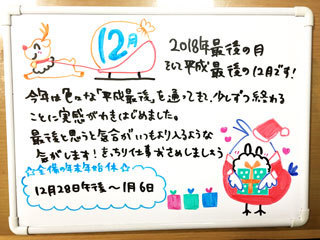 12月
2018年最後の月
そして平成最後の12月です!
今年は色々な「平成最後」を通ってきて、少しずつ終わる
ことに実感がわきはじめました。
最後と思うと気合がいつもより入るような
気がします!きっちり仕事おさめしましょう
☆全優の年末年始休☆
12月28日午後〜1月6日